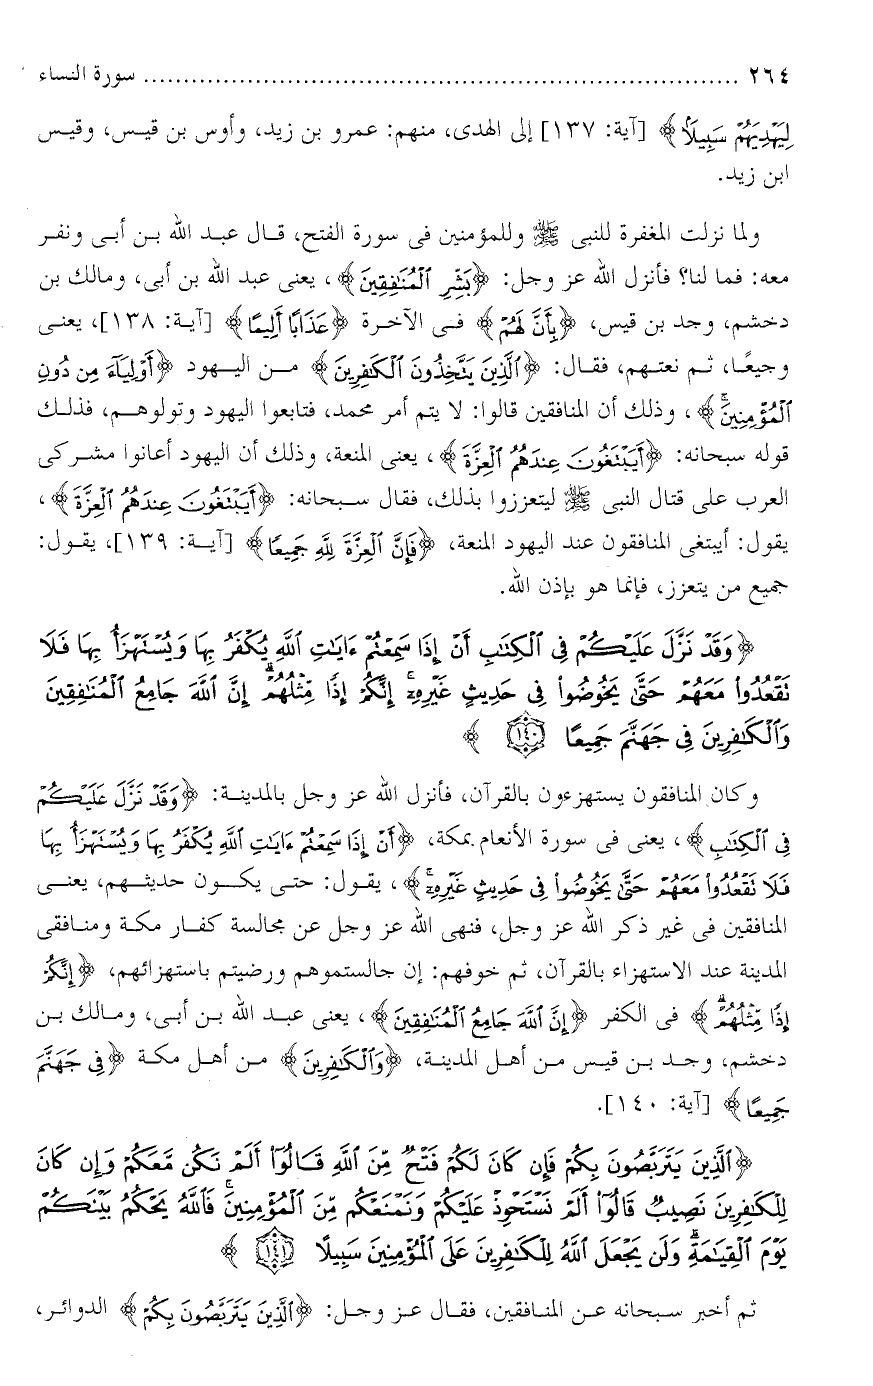 ٢٦٤ ........................................................................... سورة النساء
لِيَهْدِيَهُمْ سَبِيلًا﴾ [آية: ١٣٧] إلى الهدى، منهم: عمرو بن زيد، وأوس بن قيس، وقيس
ابن زيد.
ولما نزلت المغفرة للنبى ﷺ وللمؤمنين فى سورة الفتح، قال عبد الله بن أبى ونفر
معه: فما لنا؟ فأنزل الله عز وجل: ﴿بَشِّرِ ٱلْمُنَٰفِقِينَ﴾، يعنى عبد الله بن أبى، ومالك بن
دخشم، وجد بن قيس، ﴿بِأَنَّ لَهُمْ﴾ فى الآخرة ﴿عَذَابًا أَلِيمًا﴾ [آية: ١٣٨]، يعنى
وجيعًا، ثم نعتهم، فقال: ﴿ٱلَّذِينَ يَتَّخِذُونَ ٱلْكَٰفِرِينَ﴾ من اليهود ﴿أَوْلِيَآءَ مِن دُونِ
ٱلْمُؤْمِنِينَۚ﴾، وذلك أن المنافقين قالوا: لا يتم أمر محمد، فتابعوا اليهود وتولوهم، فذلك
قوله سبحانه: ﴿أَيَبْتَغُونَ عِندَهُمُ ٱلْعِزَّةَ﴾، يعنى المنعة، وذلك أن اليهود أعانوا مشركى
العرب على قتال النبى ﷺ ليتعززوا بذلك، فقال سبحانه: ﴿أَيَبْتَغُونَ عِندَهُمُ ٱلْعِزَّةَ﴾،
يقول: أيبتغى المنافقون عند اليهود المنعة، ﴿فَإِنَّ ٱلْعِزَّةَ لِلَّهِ جَمِيعًا﴾ [آية: ١٣٩]، يقول:
جميع من يتعزز، فإنما هو بإذن الله.
﴿وَقَدْ نَزَّلَ عَلَيْكُمْ فِى ٱلْكِتَٰبِ أَنْ إِذَا سَمِعْتُمْ ءَايَٰتِ ٱللَّهِ يُكْفَرُ بِهَا وَيُسْتَهْزَأُ بِهَا فَلَا
نَقْعُدُوا۟ مَعَهُمْ حَتَّىٰ يَخُوضُوا۟ فِى حَدِيثٍ غَيْرِهِۦٓۚ إِنَّكُمْ إِذًا مِّثْلُهُمْۗ إِنَّ ٱللَّهَ جَامِعُ ٱلْمُنَٰفِقِينَ
وَٱلْكَٰفِرِينَ فِى جَهَنَّمَ جَمِيعًا ١٤٠﴾
وكان المنافقون يستهزءون بالقرآن، فأنزل الله عز وجل بالمدينة: ﴿وَقَدْ نَزَّلَ عَلَيْكُمْ
فِى ٱلْكِتَٰبِ﴾، يعنى فى سورة الأنعام بمكة، ﴿أَنْ إِذَا سَمِعْتُمْ ءَايَٰتِ ٱللَّهِ يُكْفَرُ بِهَا وَيُسْتَهْزَأُ بِهَا
فَلَا نَقْعُدُوا۟ مَعَهُمْ حَتَّىٰ يَخُوضُوا۟ فِى حَدِيثٍ غَيْرِهِۦٓۚ﴾، يقول: حتى يكون حديثهم، يعنى
المنافقين فى غير ذكر الله عز وجل، فنهى الله عز وجل عن مجالسة كفار مكة ومنافقى
المدينة عند الاستهزاء بالقرآن، ثم خوفهم: إن جالستموهم ورضيتم باستهزائهم، ﴿إِنَّكُمْ
إِذًا مِّثْلُهُمْۗ﴾ فى الكفر ﴿إِنَّ ٱللَّهَ جَامِعُ ٱلْمُنَٰفِقِينَ﴾، يعنى عبد الله بن أبى، ومالك بن
دخشم، وجد بن قيس من أهل المدينة، ﴿وَٱلْكَٰفِرِينَ﴾ من أهل مكة ﴿فِى جَهَنَّمَ
جَمِيعًا﴾ [آية: ١٤٠].
﴿ٱلَّذِينَ يَتَرَبَّصُونَ بِكُمْ فَإِن كَانَ لَكُمْ فَتْحٌ مِّنَ ٱللَّهِ قَالُوٓا۟ أَلَمْ نَكُن مَّعَكُمْ وَإِن كَانَ
لِلْكَٰفِرِينَ نَصِيبٌ قَالُوٓا۟ أَلَمْ نَسْتَحْوِذْ عَلَيْكُمْ وَنَمْنَعْكُم مِّنَ ٱلْمُؤْمِنِينَۚ فَٱللَّهُ يَحْكُمُ بَيْنَكُمْ
يَوْمَ ٱلْقِيَٰمَةِۗ وَلَن يَجْعَلَ ٱللَّهُ لِلْكَٰفِرِينَ عَلَى ٱلْمُؤْمِنِينَ سَبِيلًا ١٤١﴾
ثم أخبر سبحانه عن المنافقين، فقال عز وجل: ﴿ٱلَّذِينَ يَتَرَبَّصُونَ بِكُمْ﴾ الدوائر،